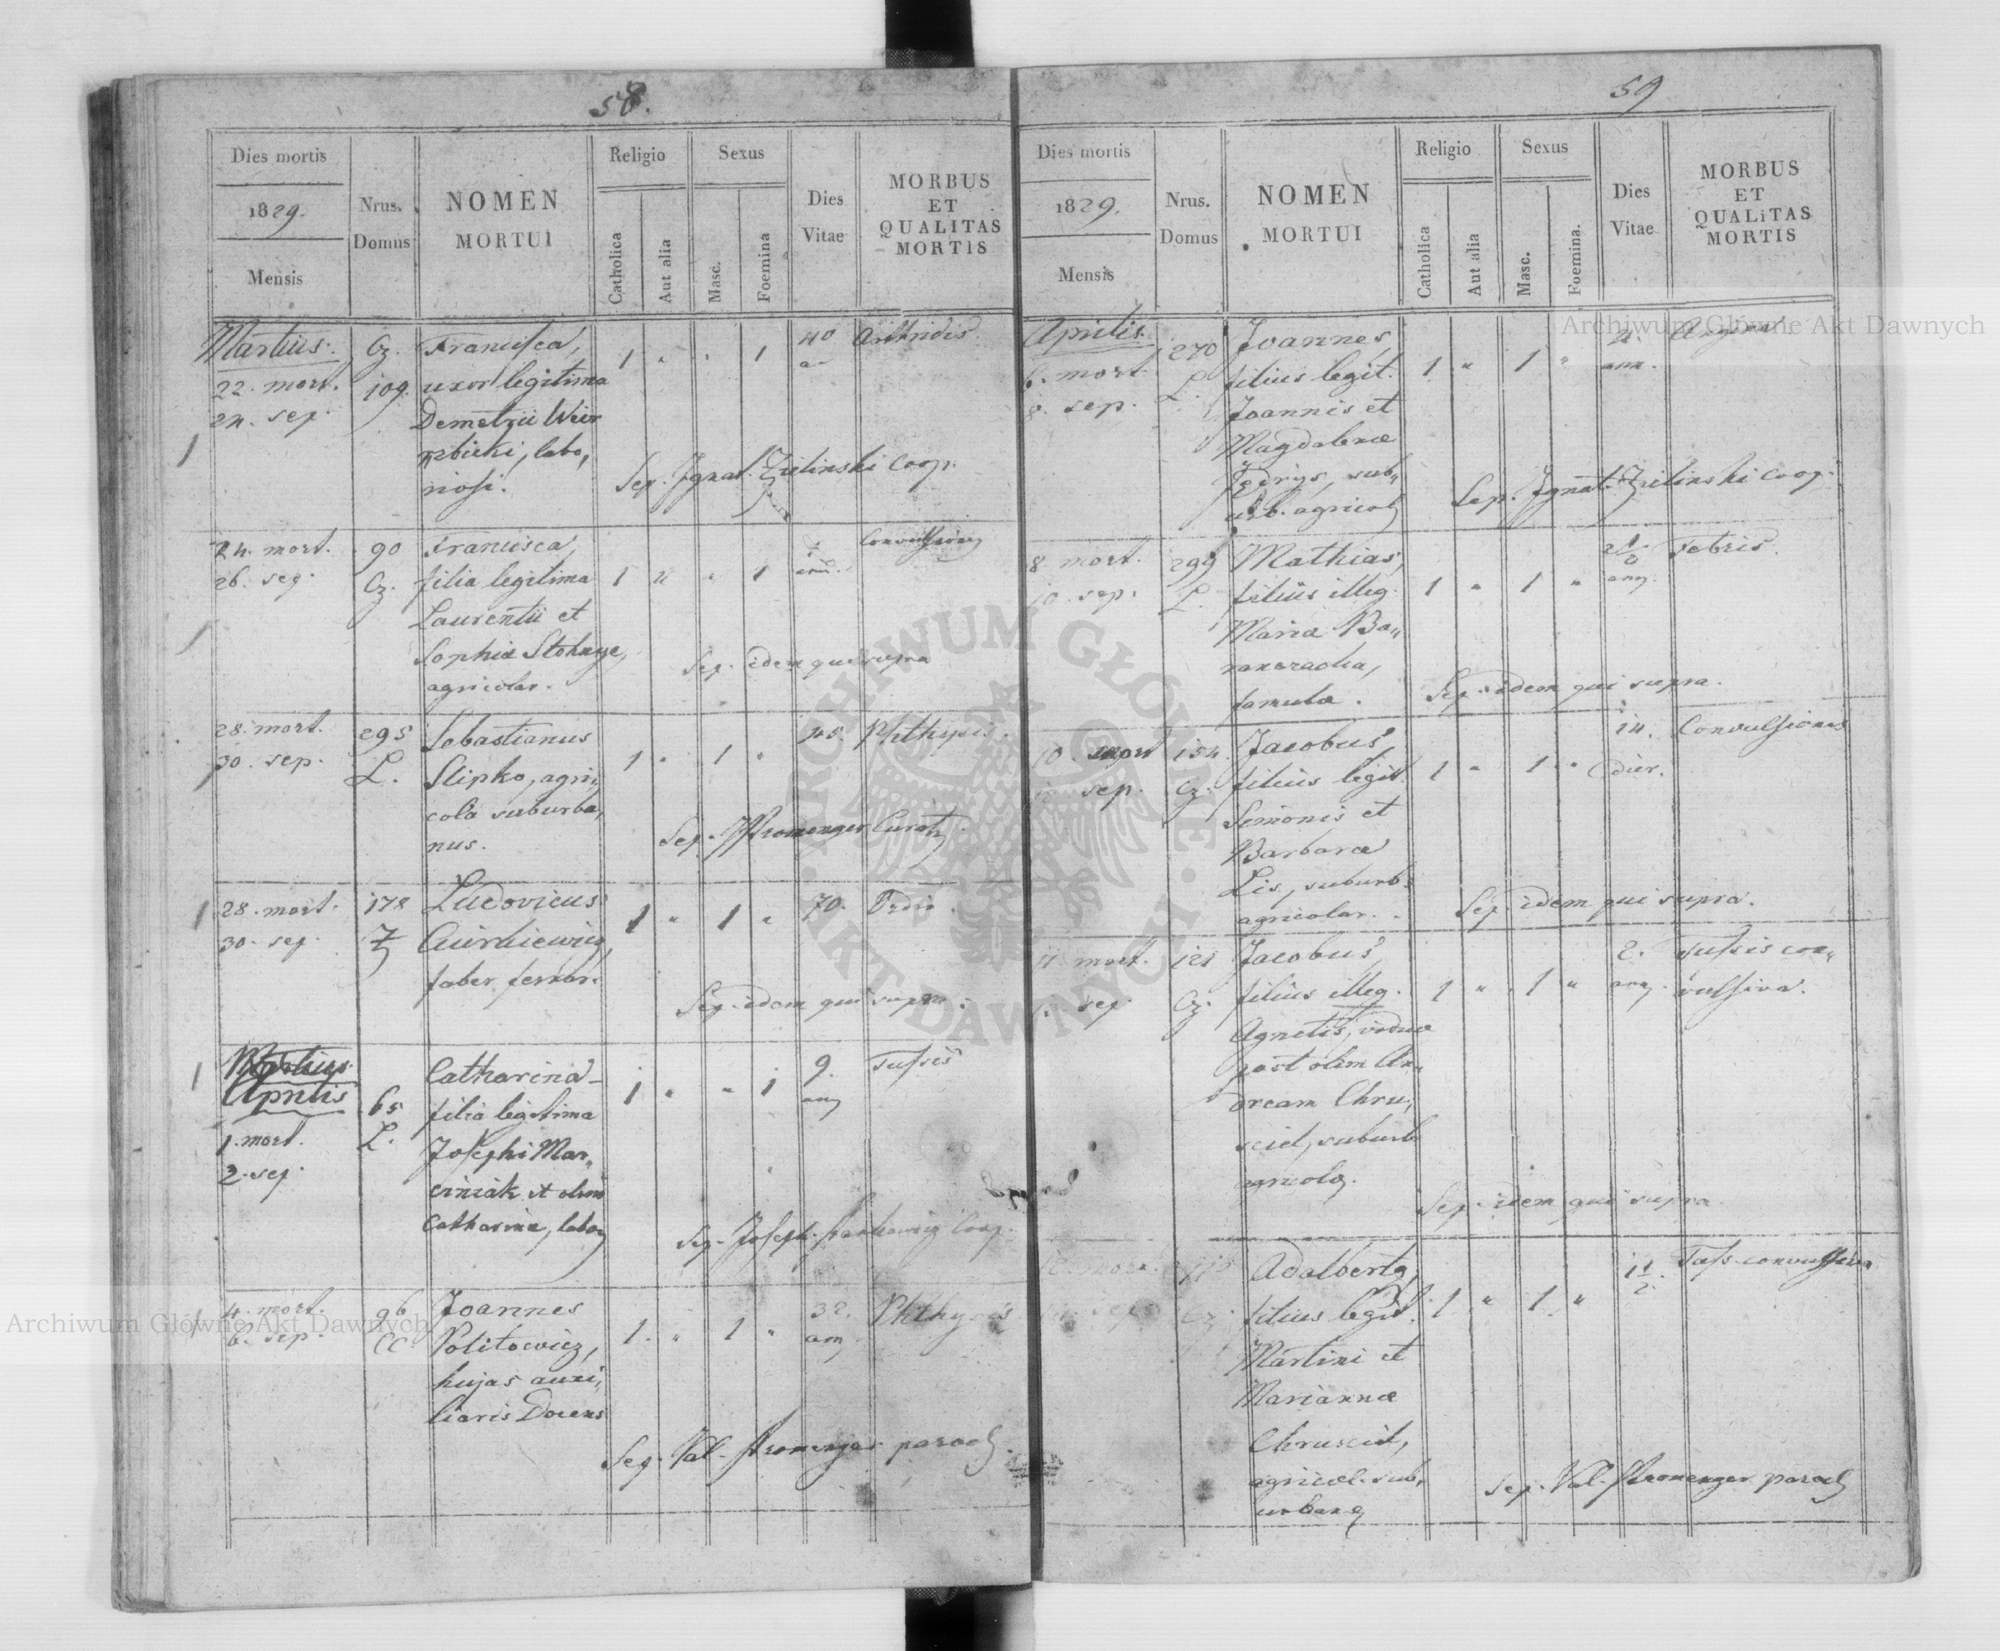 58.
Dies mortis
1829.
Mensis
Nrus.
Domus
NOMEN
MORTUI
Religio
Catholica
Aut alia
Sexus
Masc.
Foemina
Dies
Vitae
MORBUS
ET
QUALITAS
MORTIS
Martius.
22. mort.
24. sep.
Cz.
109.
Francisca,
uxor legitima
Demetrii Weir
rzbicki, labo,
riosi.
1 " " 1
40
an
Arthridis
Sep. Ignat. Zielinski coop.
24. mort.
26. sep.
90
Cz.
Francisca,
filia legitima
Laurentii et
Sophiæ
agricolar.
1 " " 1
Convulsiones
Sep. idem qui supra
28. mort.
30. sep.
295
L.
Sebastianus
Slipko, agri,
cola suburba,
nus.
1 " 1 "
45.
Phthysis.
Sep. Stromenger Curat
28. mort.
30. sep.
178
Z
Ludovicus
faber ferrar.
1 " 1 "
70.
Sep. idem qui supra.
Martius.
Aprilis
1. mort.
2. sep.
65
L.
Catharina
filia legitima
Josephi Mar,
ciniak et olim
Catharinæ, labor
1 " " 1
9.
ann
Tussis
Sep. Joseph. coop.
4. mort.
6. sep.
96
CC
Joannes
Politowicz,
hujas auxi,
liaris Docens
1. " 1 "
32.
ann
Phthysis
Sep. Val. Stromenger paroch.
59
Dies mortis
1829.
Mensis
Nrus.
Domus
NOMEN
MORTUI
Religio
Catholica
Aut alia
Sexus
Masc.
Foemina.
Dies
Vitae
MORBUS
ET
QUALITAS
MORTIS
Aprilis.
6. mort.
8. sep.
270
L.
Joannes,
filius legit.
Joannis et
Magdalenæ
Jędrys, sub,
urb. agricol
1 " 1 "
4.
ann.
Angina
Sep. Ignat. Zielinski coop.
8. mort.
10. sep.
299
L.
Mathias,
filius illeg.
Mariæ Ba,
famulæ.
1 " 1 "
ann.
Febris.
Sep. idem qui supra.
10. mort
sep.
154.
Cz.
Jacobus,
filius legit.
Simonis et
Barbaræ
Lis, suburb.
agricolar.
1 " 1 "
14.
dier.
Convulsiones
Sep. idem qui supra.
11. mort.
sep.
121
Cz.
Jacobus,
filius illeg.
Agnetis, viduæ
post olim An,
dream Chru,
sciel, suburb
agricola.
1 " 1 "
2.
ann.
Tussis con,
vulsiva.
Sep. idem qui supra.
mort.
sep.
Cz
Adalbertus,
filius legit.
Martini et
Mariannæ
agricol. sub,
urbang
1 " 1 "
1 1/2
Tuss. convulsiva
Sep. Val. Stromenger paroch
Archiwum Główne Akt Dawnych
Archiwum Główne Akt Dawnych
ARCHIWUM GŁÓWNE AKT DAWNYCH